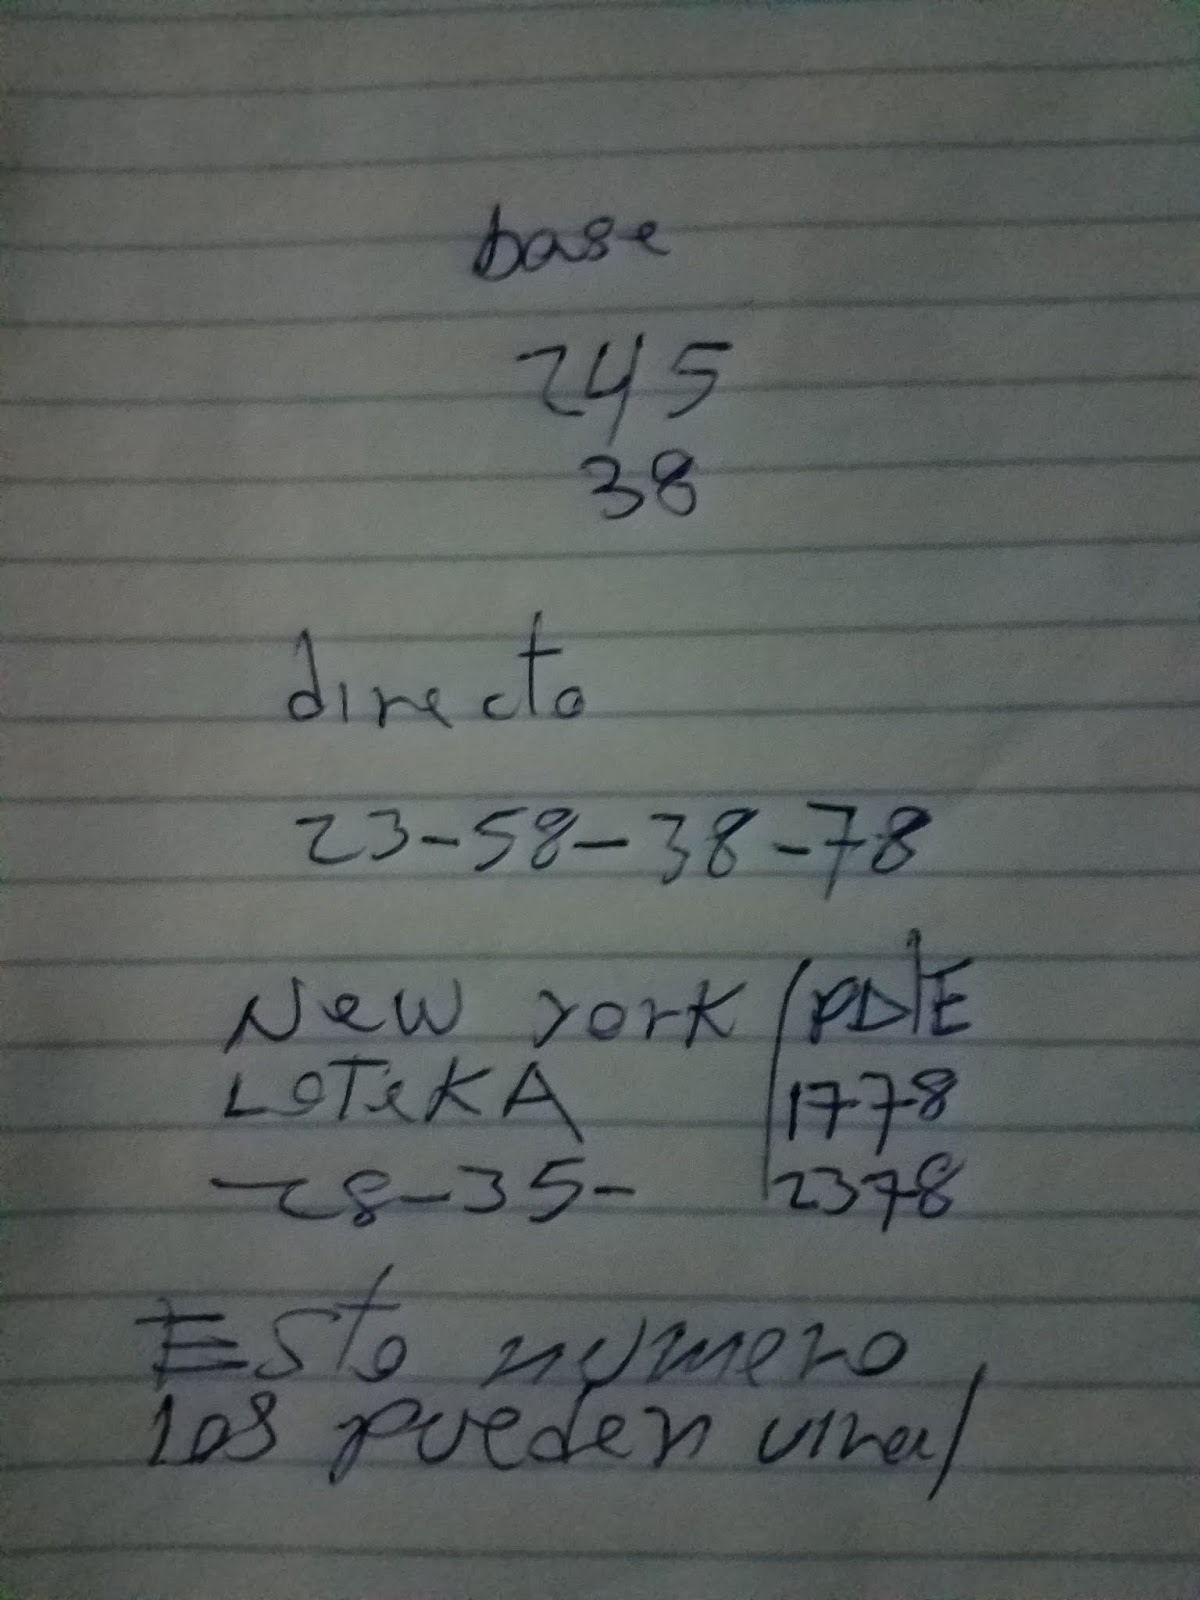 base
245
38
directo
23-58-38-78
New york / PDE
LOTeKA 1778
-28-35- 2378
Esto numero
Los pueden viral